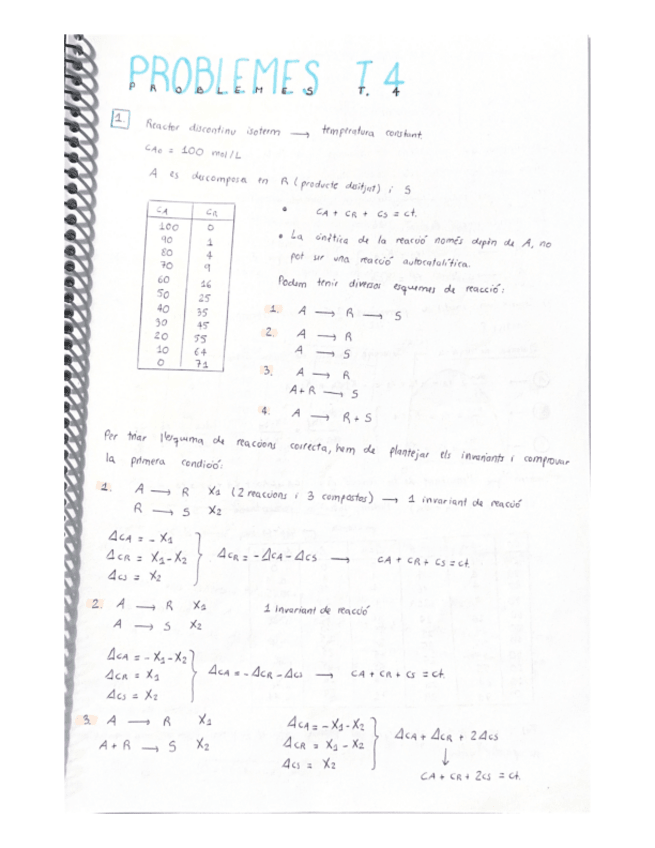 PROBLEMES T.4
PROBLEMES T. 4
1. Reactor discontinu isoterm → temperatura constant.
CA0 = 100 mol/L
A es descomposa en R (producte desitjat) i S
CA CR
100 0
90 1
80 4
70 9
60 16
50 25
40 35
30 45
20 55
10 64
0 71
• CA + CR + CS = ct.
• La cinètica de la reacció només depèn de A, no
pot ser una reacció autocatalítica.
Podem tenir diversos esquemes de reacció:
1. A → R → S
2. A → R
A → S
3. A → R
A+R → S
4. A → R+S
Per triar l'esquema de reaccions correcta, hem de plantejar els invariants i comprovar
la primera condició:
1. A → R X1 (2 reaccions i 3 compostos) → 1 invariant de reacció
R → S X2
ΔCA = - X1
ΔCR = X1-X2 ΔCR = -ΔCA-ΔCS → CA + CR + CS = ct.
ΔCS = X2
2. A → R X1 1 invariant de reacció
A → S X2
ΔCA = - X1-X2
ΔCR = X1 ΔCA = - ΔCR - ΔCS → CA + CR + CS = ct.
ΔCS = X2
3. A → R X1 ΔCA = - X1-X2
A+R → S X2 ΔCR = X1 - X2 ΔCA + ΔCR + 2ΔCS
ΔCS = X2 ↓
CA + CR + 2CS = ct.